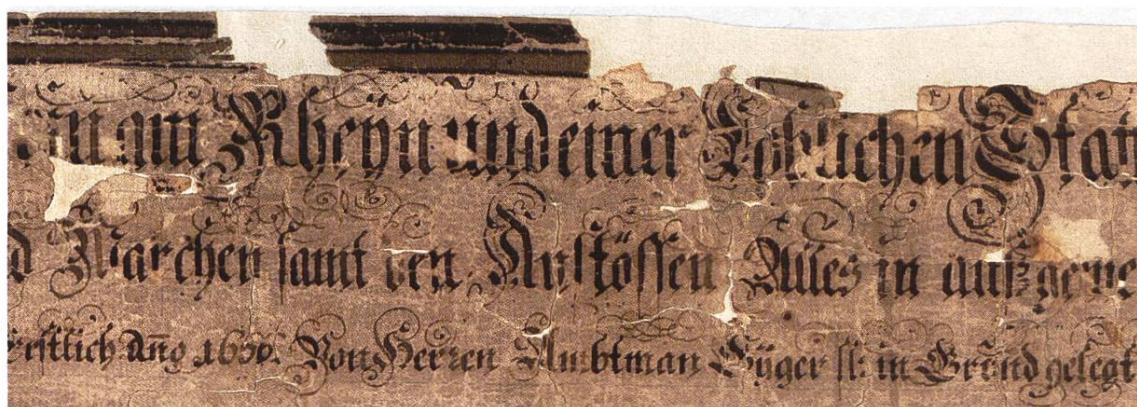 am Rheÿn und einer Loblichen Stat
Marchen samt den Anstössen Alles in außgeme
Erstlich Anno 1650. Von Herren Ambtman Gÿger sl: in Grund gelegt